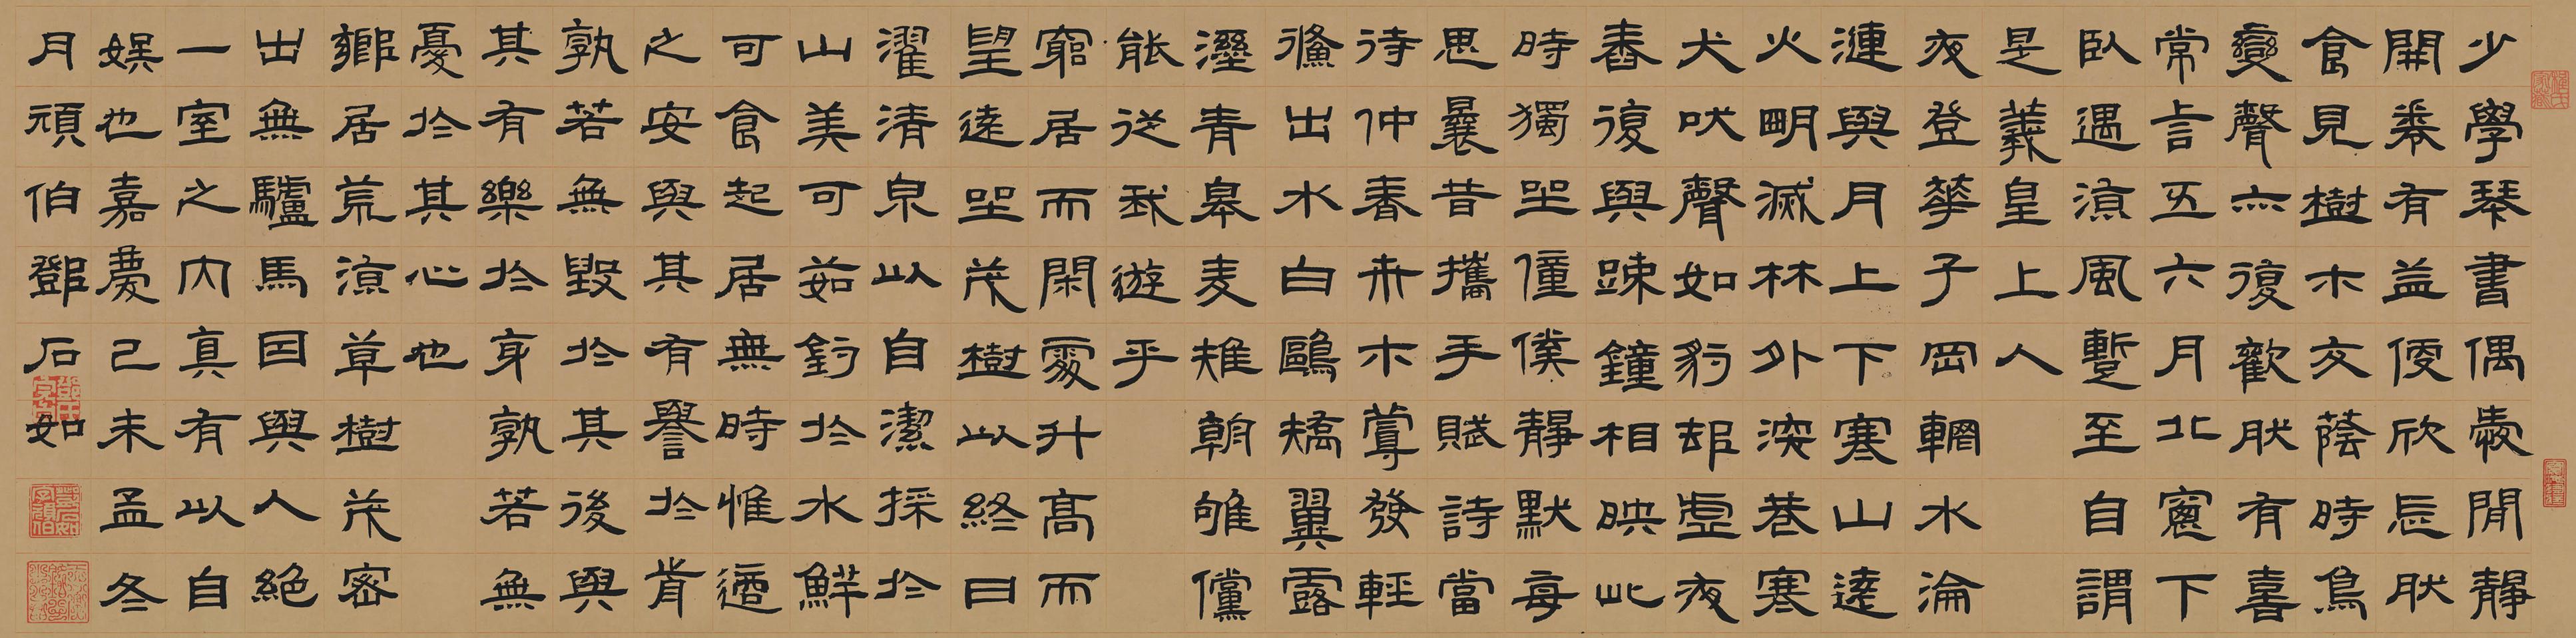 少學琴書偶愛閒靜
開卷有益便欣辰肰
食見樹木交蔭時鳥
變聲亦復歡肰有喜
常言五六月北窻下
臥遇涼風暫至自謂
是羲皇上人
夜登華子岡輞水淪
漣與月上下寒山遠
火明滅林外深巷寒
犬吠聲如豹邨虛夜
舂復與踈鐘相映此
時獨坐僮僕靜默每
思曩昔攜手賦詩當
待仲春卉木蔓發輕
鯈出水白鷗矯翼露
溼青皋麦雉朝雊儻
能從我遊乎
窮居而閑處升高而
望遠坐茂樹以終日
濯清泉以自潔採於
山美可茹釣於水鮮
可食起居無時惟適
之安與其有譽於歬
孰若無毀於其後與
其有樂於身孰若無
憂於其心也
鄉居荒涼草樹茂密
出無驢馬因與人絕
一室之內真有以自
娛也嘉慶己未孟冬
月頑伯鄧石如